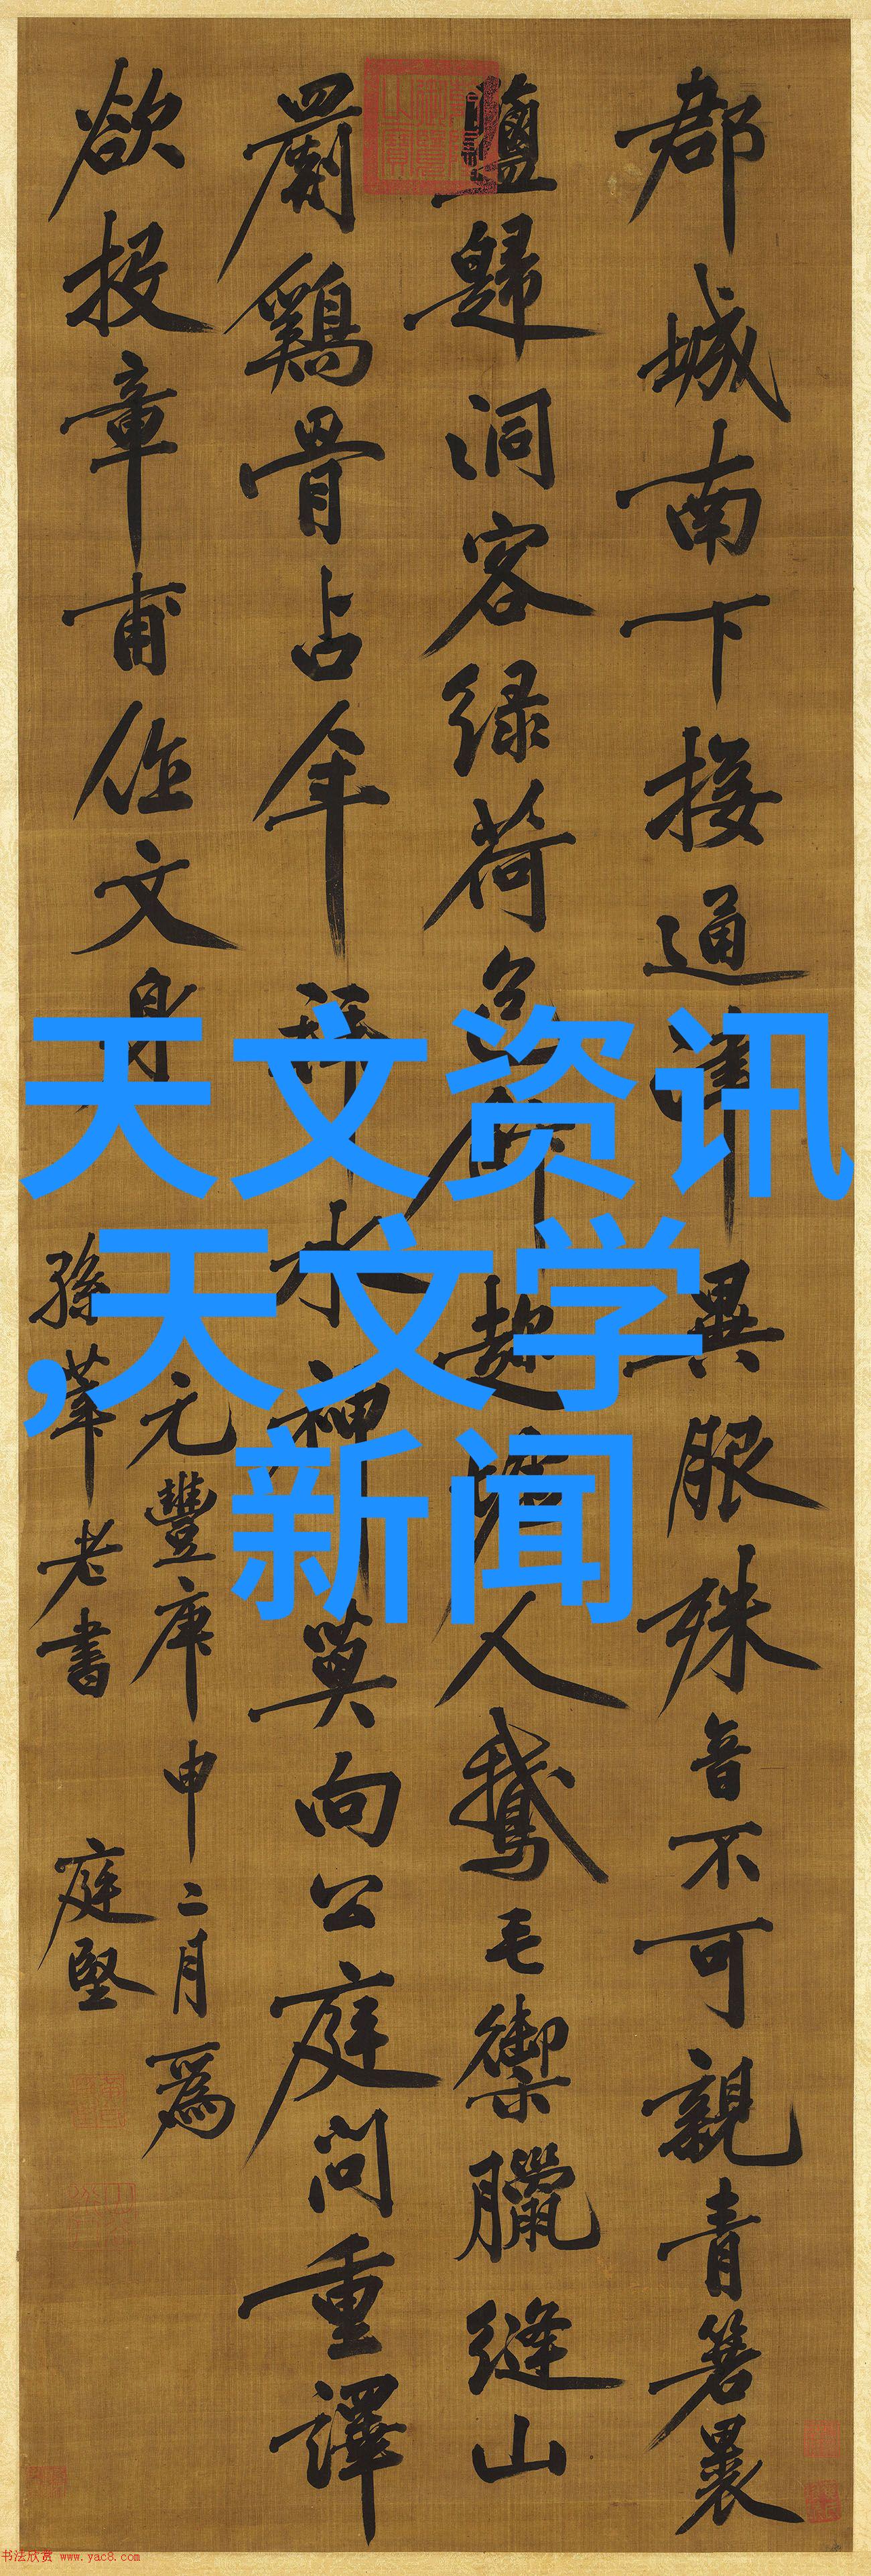 郡城南下接通津異服殊音不可親青箬裹
鹽歸洞客綠荷包飯趁墟人鵝毛禦臘縫山
罽鷄骨占年拜水神莫向公庭問重譯
欲投章甫作文身
元豐庚申二月為
孫莘老書
庭堅
天文资讯
,天文学
新闻
书法欣赏 www.yac8.com